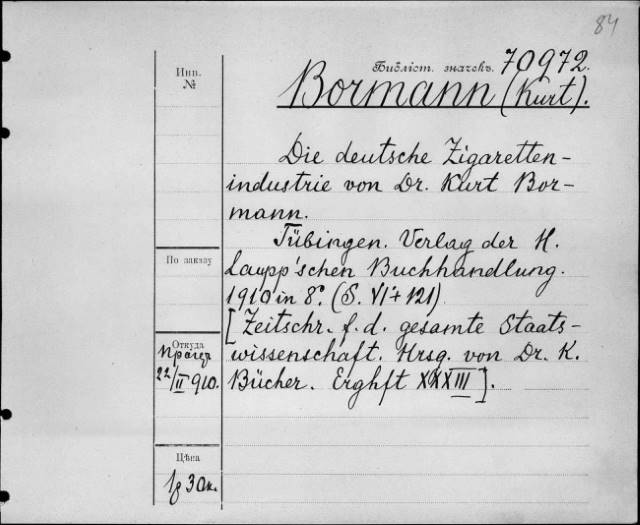 84
Инв.
№
Библіот. значекъ. 70972.
Bormann (Kurt).
Die deutsche Zigaretten-
industrie von Dr. Kurt Bor-
mann.
Tübingen. Verlag der H.
По заказу
Laupp'schen Buchhandlung.
1910 in 8°. (S. VI + 121)
[Zeitschr. f. d. gesamte Staats-
Откуда
wissenschaft. Hrsg. von Dr. K.
22/II 910.
Bücher. Erghft XXXIII].
Цѣна
30к.